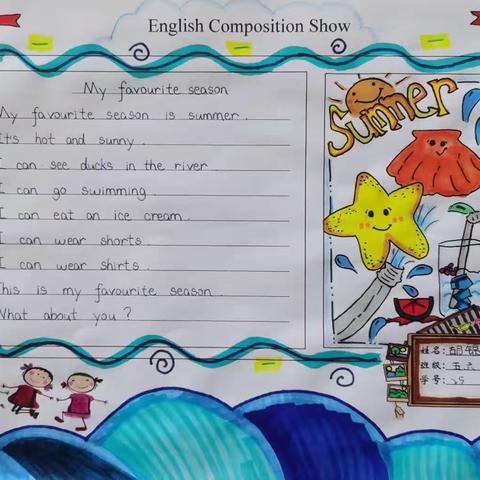 English Composition Show
My favourite season
My favourite season is summer.
It's hot and sunny.
I can see ducks in the river.
I can go swimming.
I can eat an ice cream.
I can wear shorts.
I can wear shirts.
This is my favourite season.
What about you?
Summer
姓名:胡锦
班级:五六
学号:25